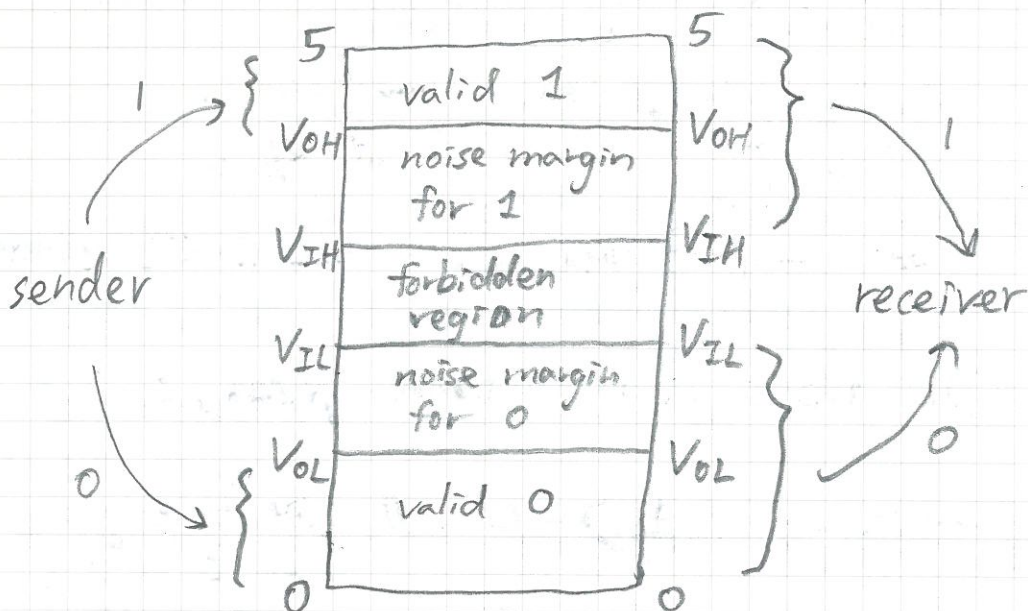 5
5
valid 1
1
VOH
VOH
1
noise margin
for 1
VIH
VIH
sender
forbidden
region
receiver
VIL
VIL
noise margin
for 0
0
VOL
VOL
0
valid 0
0
0